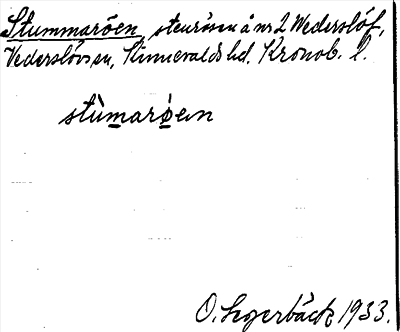 Stummaröen, stenrösen å nr 2 Wederslöf,
Vederslövs sn, Kinnevalds hd. Kronob. l.
stùmarøein
O. Segerbäck 1933.